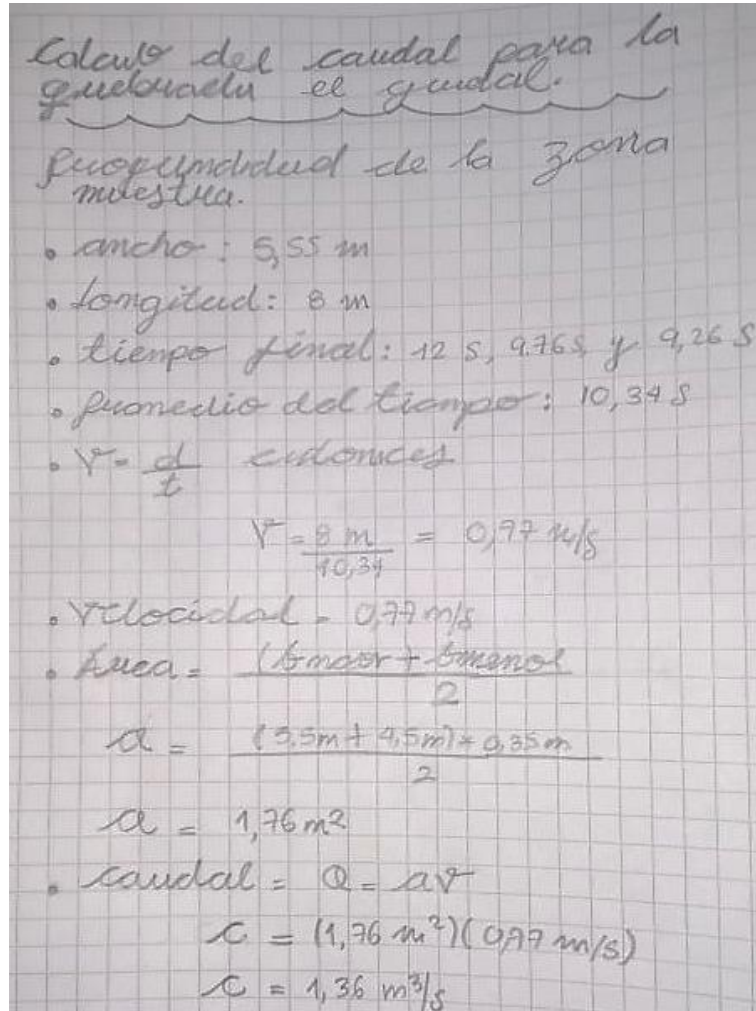 Calculo del caudal para la
quebrada el guadal.
profundidad de la zona
muestra.
• ancho: 5,55 m
• longitud: 8 m
• tiempo final: 12 s, 9.76s, y 9,26 s
• promedio del tiempo: 10,34 s
• V = d/t entonces
V = 8 m/10,34 = 0,77 m/s
• Velocidad = 0,77 m/s
• Área = (bmaor + bmenor
2
a = (5.5m + 4,5m) * 0,35m
2
a = 1,76 m²
• caudal = Q = av
c = (1,76 m²)(0,77 m/s)
c = 1,36 m³/s